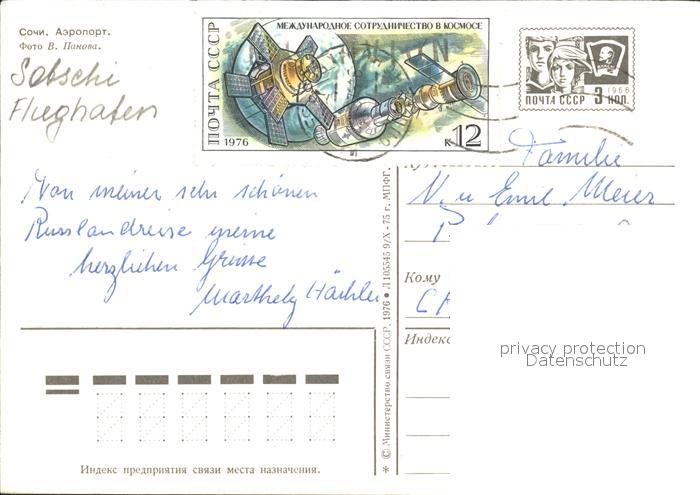 Сочи. Аэропорт.
Фото В. Панова.
Sotschi
Flughafen
МЕЖДУНАРОДНОЕ СОТРУДНИЧЕСТВО В КОСМОСЕ
ПОЧТА СССР
1976
К 12
1966
ПОЧТА СССР 3 КОП.
Von meiner sehr schönen
Russlandreise meine
herzlichen Grüsse
Familie
u Emil Meier
Кому
Индекс
© Министерство связи СССР. 1976 ● Л 105545 9/X - 75 г. МПФГ.
privacy protection
Datenschutz
Индекс предприятия связи места назначения.